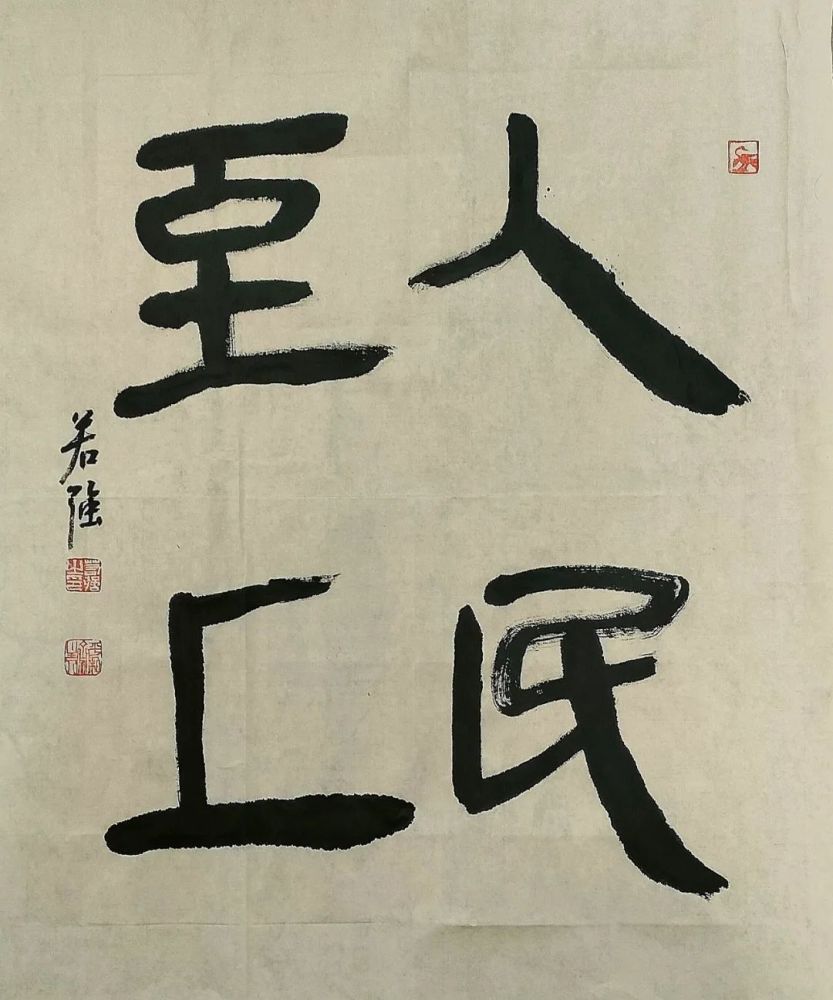 人民
至上
若强